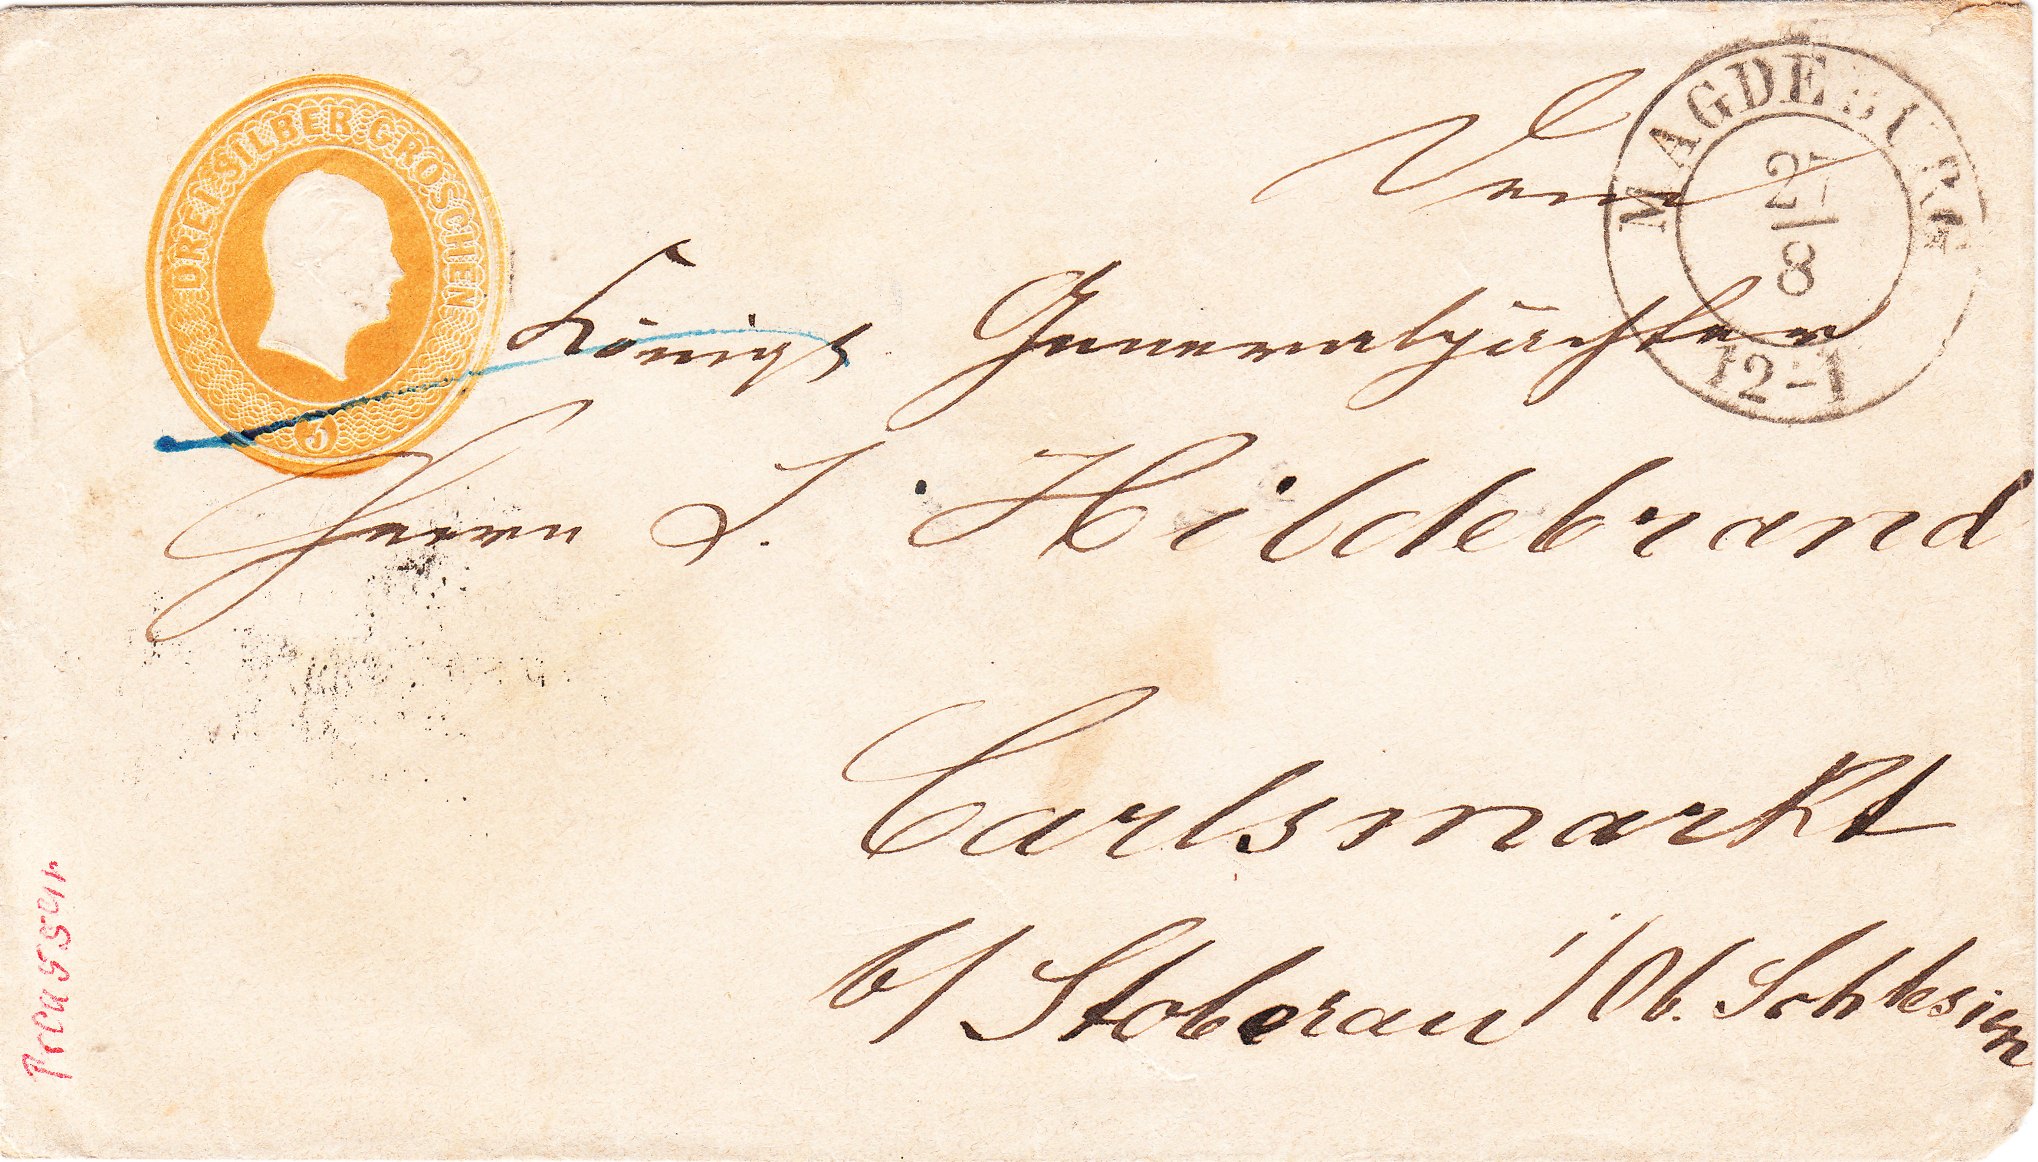 DREI SILBER GROSCHEN
3
MAGDEBURG
27
8
12-1
Dem
Königl Generalpächter
Herrn L. Hildebrand
Carlsmarkt
b/ Stoberau i/Ob. Schlesien
Preussen